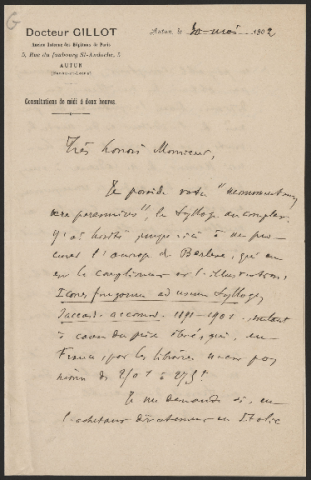 G
Docteur GILLOT
Ancien Interne des Hôpitaux de Paris
5, Rue du faubourg St-Andoche, 5
AUTUN
(Saône-et-Loire)
Consultations de midi à deux heures
Autun le 20 mai 1902
Très honoré Monsieur,
Je possède votre "monumentum
aere perennius", le Sylloge au complet.
J'ai hésité jusqu'ici à me pro-
curer l'ouvrage de Berlese, qui en
est le complément et l'illustration,
Icones fungorum ad usum Sylloges
Saccard. accomod. 1891-1901, surtout
à cause du prix élevé, qui, en
France, par les libraires n'est pas
moins de
Je me demande si, en
l'achetant directement en Italie